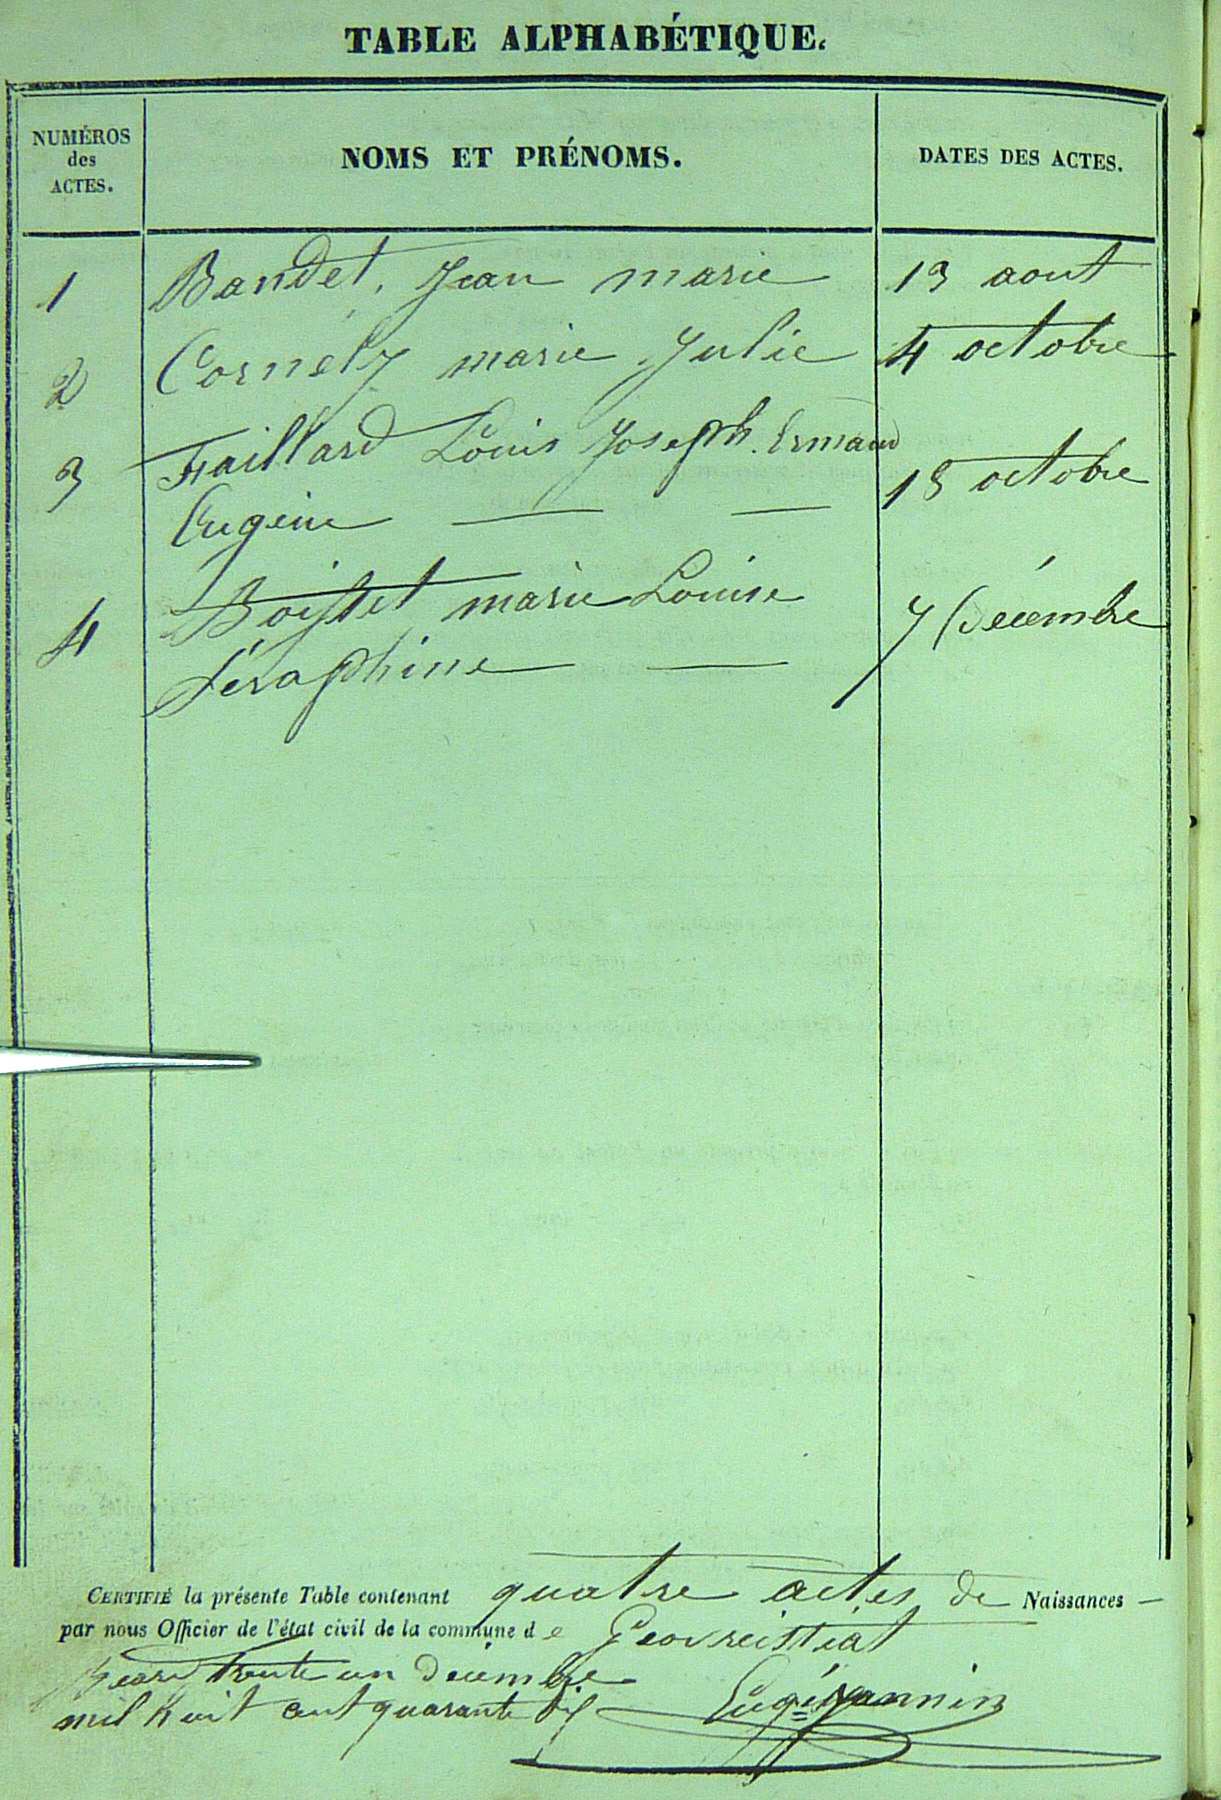 TABLE ALPHABÉTIQUE.
NUMÉROS
des
ACTES.
NOMS ET PRÉNOMS.
DATES DES ACTES.
1 Bandet, Jean marie 13 aout
2 Cornély marie Julie 4 octobre
3 Faillard Louis Joseph. Ermand 18 octobre
Eugéne
4 Boisset marie Louise 7 Décembre
Séraphine
CERTIFIÉ la présente Table contenant quatre actes de Naissances
par nous Officier de l'état civil de la commune de Geovreissiat
trente un Décembre
mil huit cent quarante